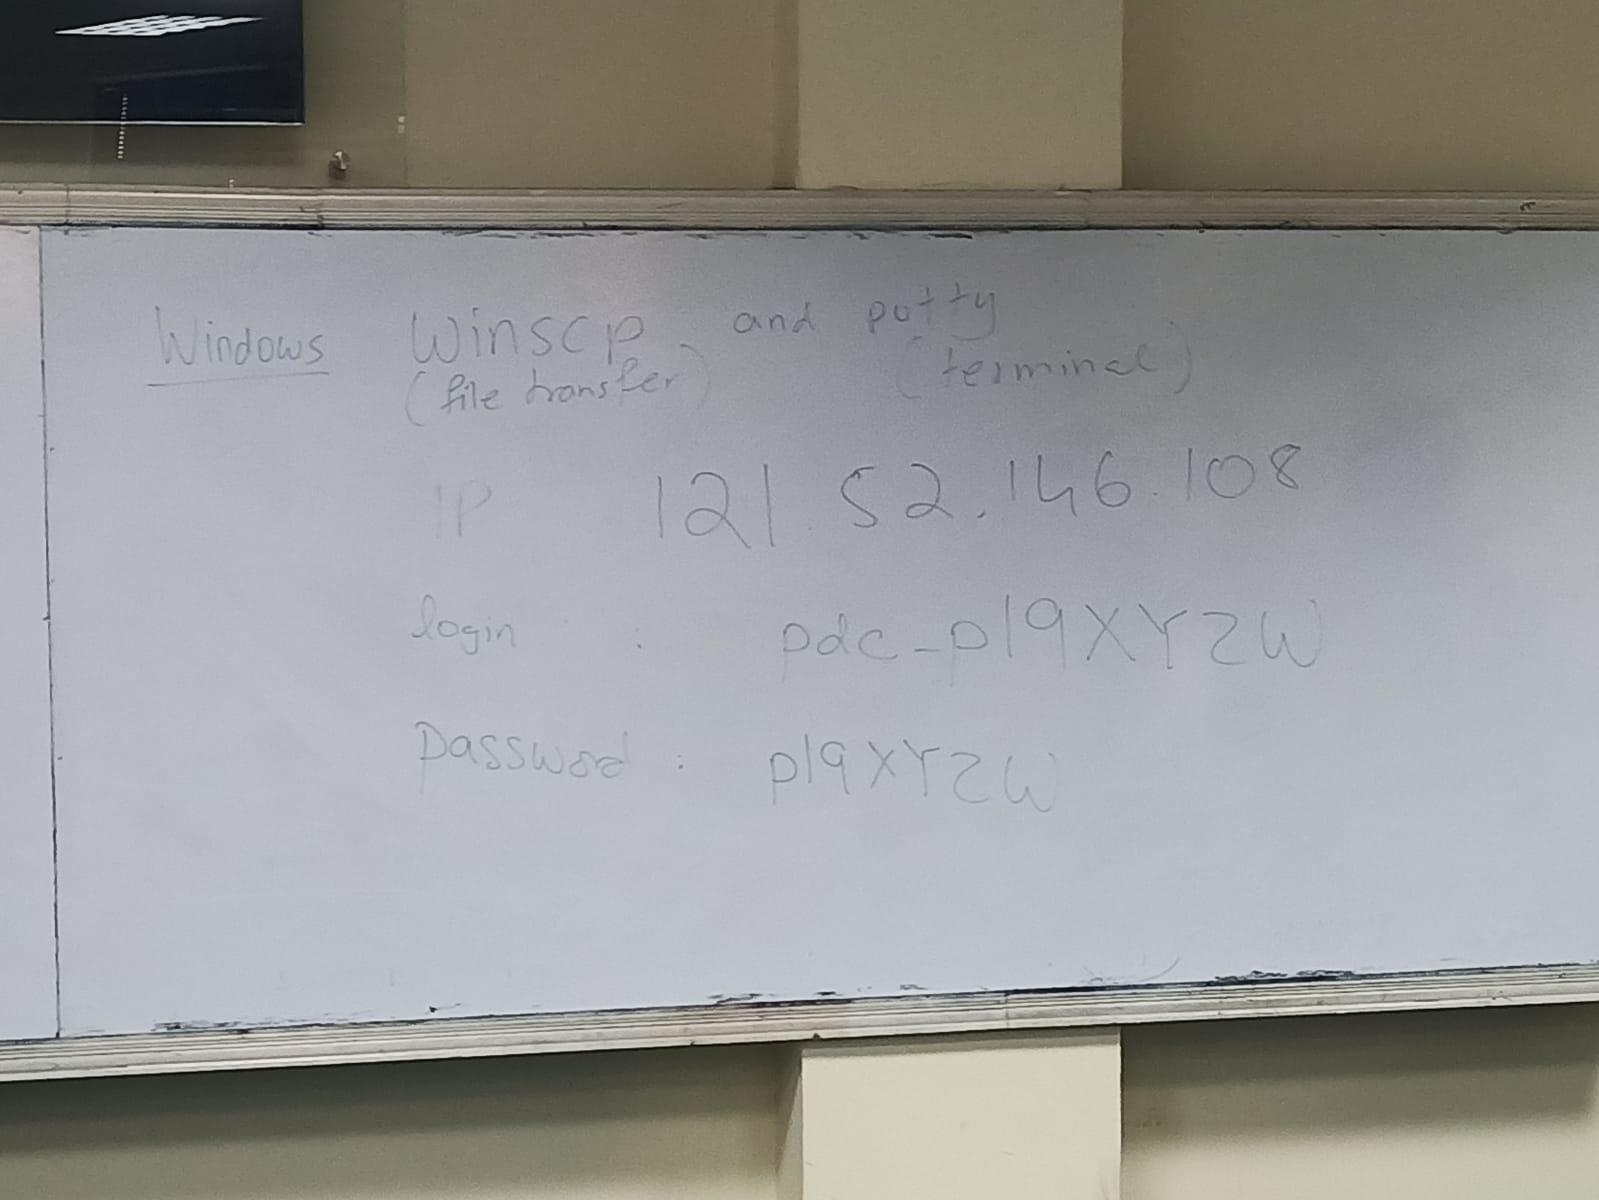 Windows Winscp and putty
(file transfer) (terminal)
IP 121.52.146.108
login : pdc-p19XYZW
password : p19XYZW